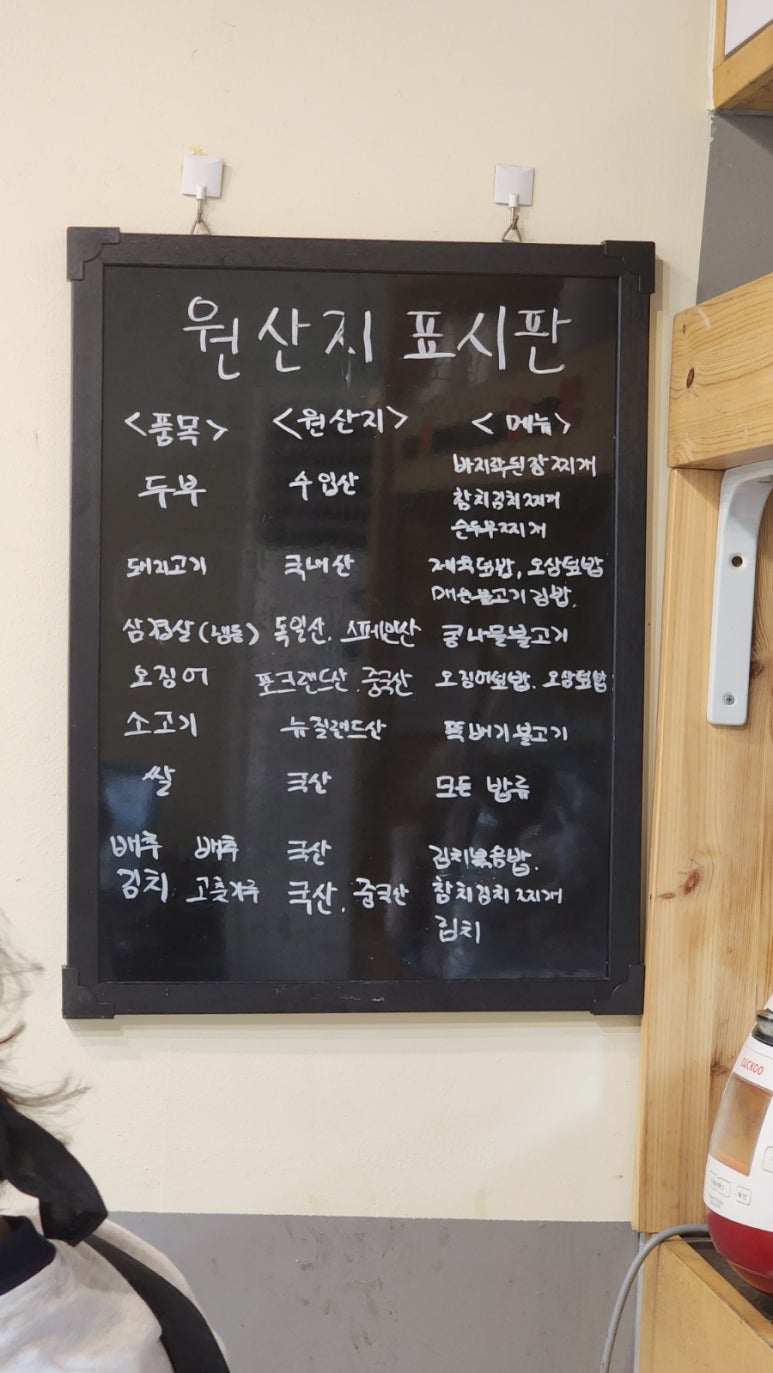 원산지 표시판
<품목> <원산지> <메뉴>
두부 수입산 바지락된장찌개
참치김치찌개
순두부찌개
돼지고기 국내산 제육덮밥, 오삼덮밥
매운불고기김밥.
삼겹살(냉동) 독일산. 스페인산 콩나물불고기
오징어 포크랜드산. 중국산 오징어덮밥. 오삼덮밥
소고기 뉴질랜드산 뚝배기불고기
쌀 국산 모든 밥류
배추 배추 국산 김치볶음밥.
김치 고춧가루 국산. 중국산 참치김치찌개
김치
CUCKOO